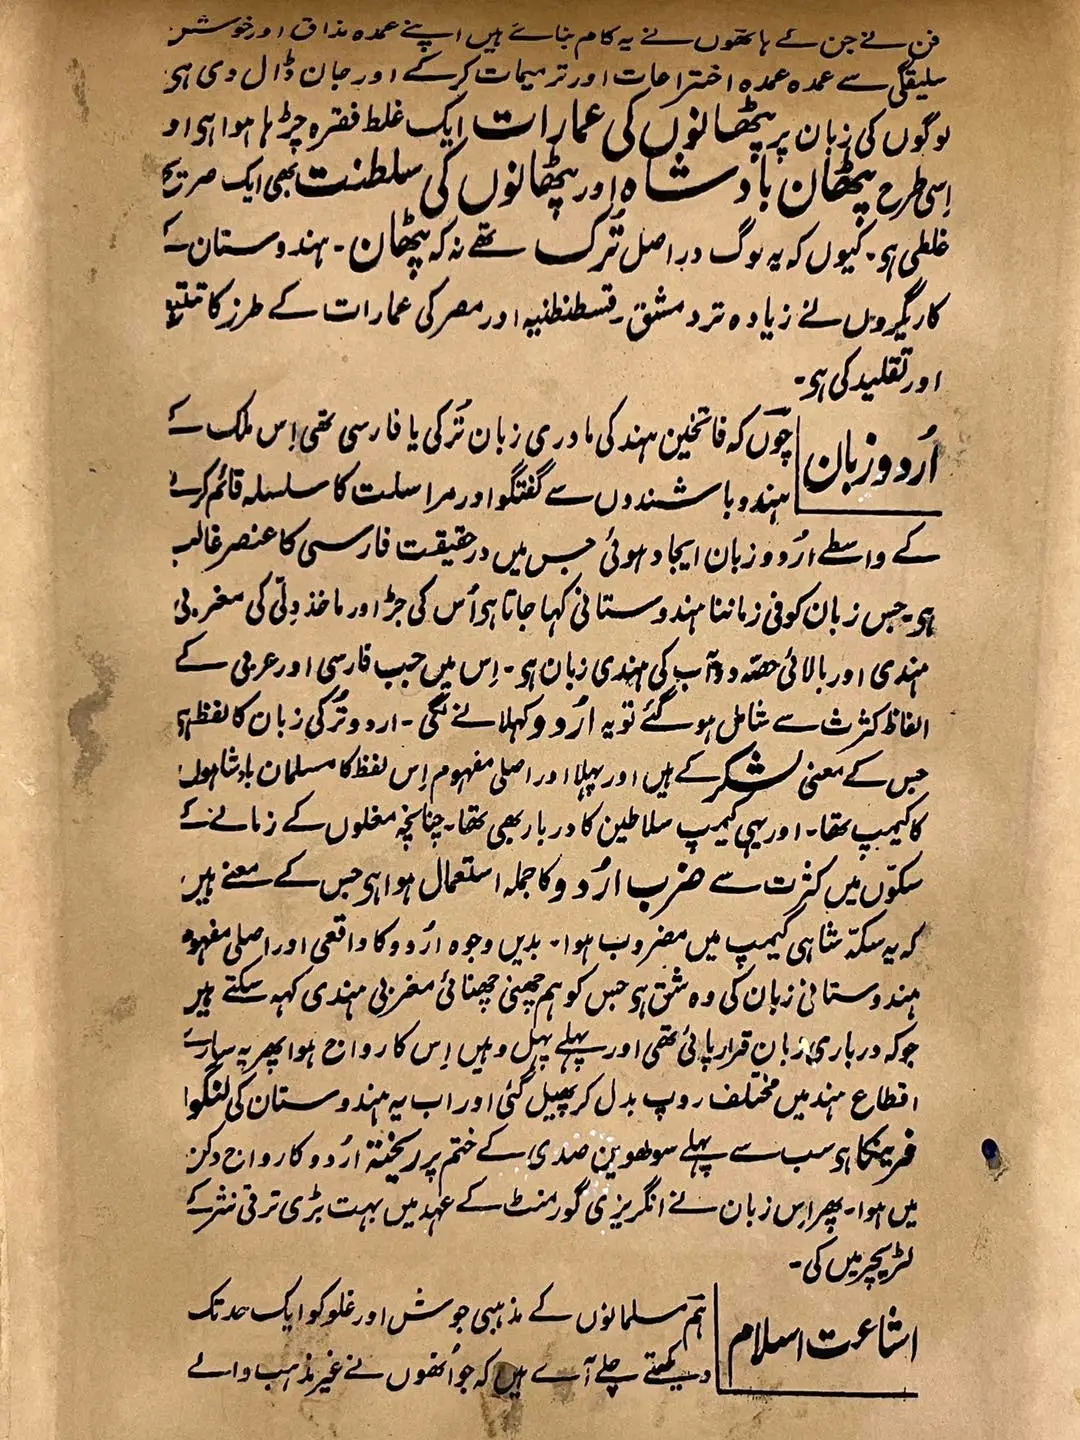 فن نے جن کے ہاتھوں نے یہ کام بنائے ہیں اپنے عمدہ مذاق اور خوش
سلیقگی سے عمدہ عمدہ اختراعات اور ترمیمات کرکے اور جان ڈال دی ہی
لوگوں کی زبان پر پٹھانوں کی عمارات ایک غلط فقرہ چڑہا ہوا ہی او
اِسی طرح پٹھان بادشاہ اور پٹھانوں کی سلطنت بھی ایک صریح
غلطی ہی۔ کیوں کہ یہ لوگ دراصل تُرک تھے نہ کہ پٹھان۔ ہندوستان کے
کاریگروں نے زیادہ تر دمشق۔ قسطنطنیہ اور مصر کی عمارات کے طرز کا تتبع
اور تقلید کی ہی۔
اُردو زبان
چوں کہ فاتحین ہند کی مادری زبان تُرکی یا فارسی تھی اِس ملک کے
ہندو باشندوں سے گفتگو اور مراسلت کا سلسلہ قائم کرنے
کے واسطے اُردو زبان ایجاد ہوئی جس میں درحقیقت فارسی کا عنصر غالب
ہی۔ جس زبان کو فی زماننا ہندوستانی کہا جاتا ہی اُس کی جڑ اور ماخذ دِلّی کی مغربی
ہندی اور بالائی حصّہ دوآب کی ہندی زبان ہی۔ اِس میں جب فارسی اور عربی کے
الفاظ کثرت سے شامل ہوگئے تو یہ اُردو کہلانے لگی۔ اردو تُرکی زبان کا لفظ ہی
جس کے معنی لشکر کے ہیں اور پہلا اور اصلی مفہوم اِس لفظ کا مسلمان بادشاہوں
کا کیمپ تھا۔ اور یہی کیمپ سلاطین کا دربار بھی تھا۔ چنانچہ مغلوں کے زمانے کے
سکّوں میں کثرت سے ضرب اُردو کا جملہ استعمال ہوا ہی جس کے معنے ہیں
کہ یہ سکّہ شاہی کیمپ میں مضروب ہوا۔ بدیں وجوہ اُردو کا واقعی اور اصلی مفہوم
ہندوستانی زبان کی وہ شق ہی جس کو ہم چھنی چھنائی مغربی ہندی کہہ سکتے ہیں
جو کہ درباری زبان قرار پائی تھی اور پہلے پہل وہیں اِس کا رواج ہوا پھر یہ سارے
اقطاع ہند میں مختلف روپ بدل کر پھیل گئی اور اب یہ ہندوستان کی لنگوا
فرینکا ہی سب سے پہلے سولھویں صدی کے ختم پر ریختہ اُردو کا رواج دکن
میں ہوا۔ پھر اِس زبان نے انگریزی گورمنٹ کے عہد میں بہت بڑی ترقی نثر کے
لٹریچر میں کی۔
اشاعت اسلام
ہم مسلمانوں کے مذہبی جوش اور غلو کو ایک حد تک
دیکھتے چلے آے ہیں کہ جو اُنھوں نے غیر مذہب والے